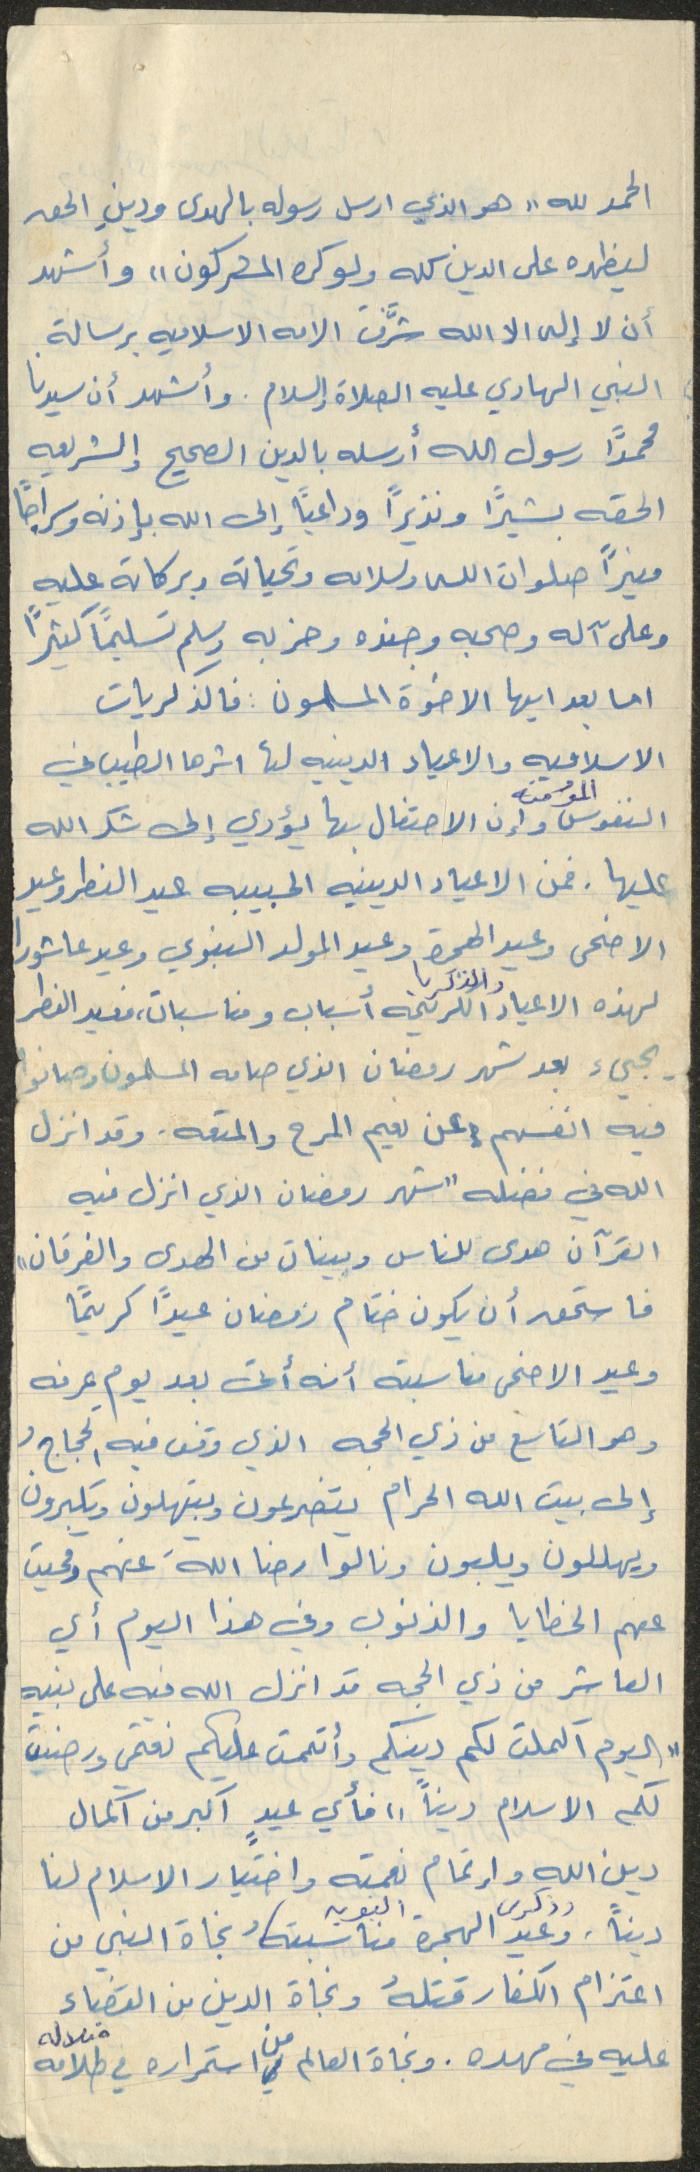 الحمد لله "هو الذي ارسل رسوله بالهدى ودين الحق
ليظهره على الدين كله ولو كره المشركون" وأشهد
أن لا إله الا الله شرَّف الامه الاسلاميه برسالة
النبي الهادي عليه الصلاة والسلام. وأشهد أن سيدنا
محمدًا رسول الله أرسله بالدين الصحيح والشريعه
الحقه بشيرًا ونذيرًا وداعيًا إلى الله بإذنه وسراجًا
منيرًا صلوات الله وسلامه وتحياته وبركاته عليه
وعلى آله وصحبه وجنده وحزبه وسلم تسليمًا كثيرًا
اما بعد ايها الاخوة المسلمون: فالذكريات
الاسلاميه والاعياد الدينيه لها اثرها الطيب في
النفوس المؤمنه وإن الاحتفال بها يؤدي إلى شكر الله
عليها. فمن الاعياد الدينيه الحبيبه عيد الفطر وعيد
الاضحى وعيد الهجرة وعيد المولد النبوي وعيد عاشورا
لهذه الاعياد والذكريا الكريمه أسباب ومناسبات، فعيد الفطر
يجيء بعد شهر رمضان الذي صامه المسلمون وصانوا
فيه انفسهم عن نعيم المرح والمتعه. وقد انزل
الله في فضله "شهر رمضان الذي انزل فيه
القرآن هدى للناس وبينات من الهدى والفرقان"
فاستحق أن يكون ختام رمضان عيدًا كريمًا
وعيد الاضحى مناسبته أنه أتى بعد يوم عرفه
وهو التاسع من ذي الحجه الذي وقف فيه الحجاج
إلى بيت الله الحرام يتضرعون ويبتهلون ويكبرون
ويهللون ويلبون ونالوا رضا الله عنهم ومحيت
عنهم الخطايا والذنوب وفي هذا اليوم أي
العاشر من ذي الحجه قد انزل الله فيه على نبيه
"اليوم اكملت لكم دينكم وأتممت عليكم نعمتي ورضيت
لكم الاسلام دينًا" فأي عيدٍ اكبر من اكمال
دين الله وإتمام نعمته واختيار الاسلام لنا
دينًا. وعيد وذكرى الهجرة النبويه مناسبته نجاة النبي من
اعتزام الكفار قتلهُ ونجاة الدين من القضاء
عليه في مهده. ونجاة العالم من استمراره في ظلامه وضلاله